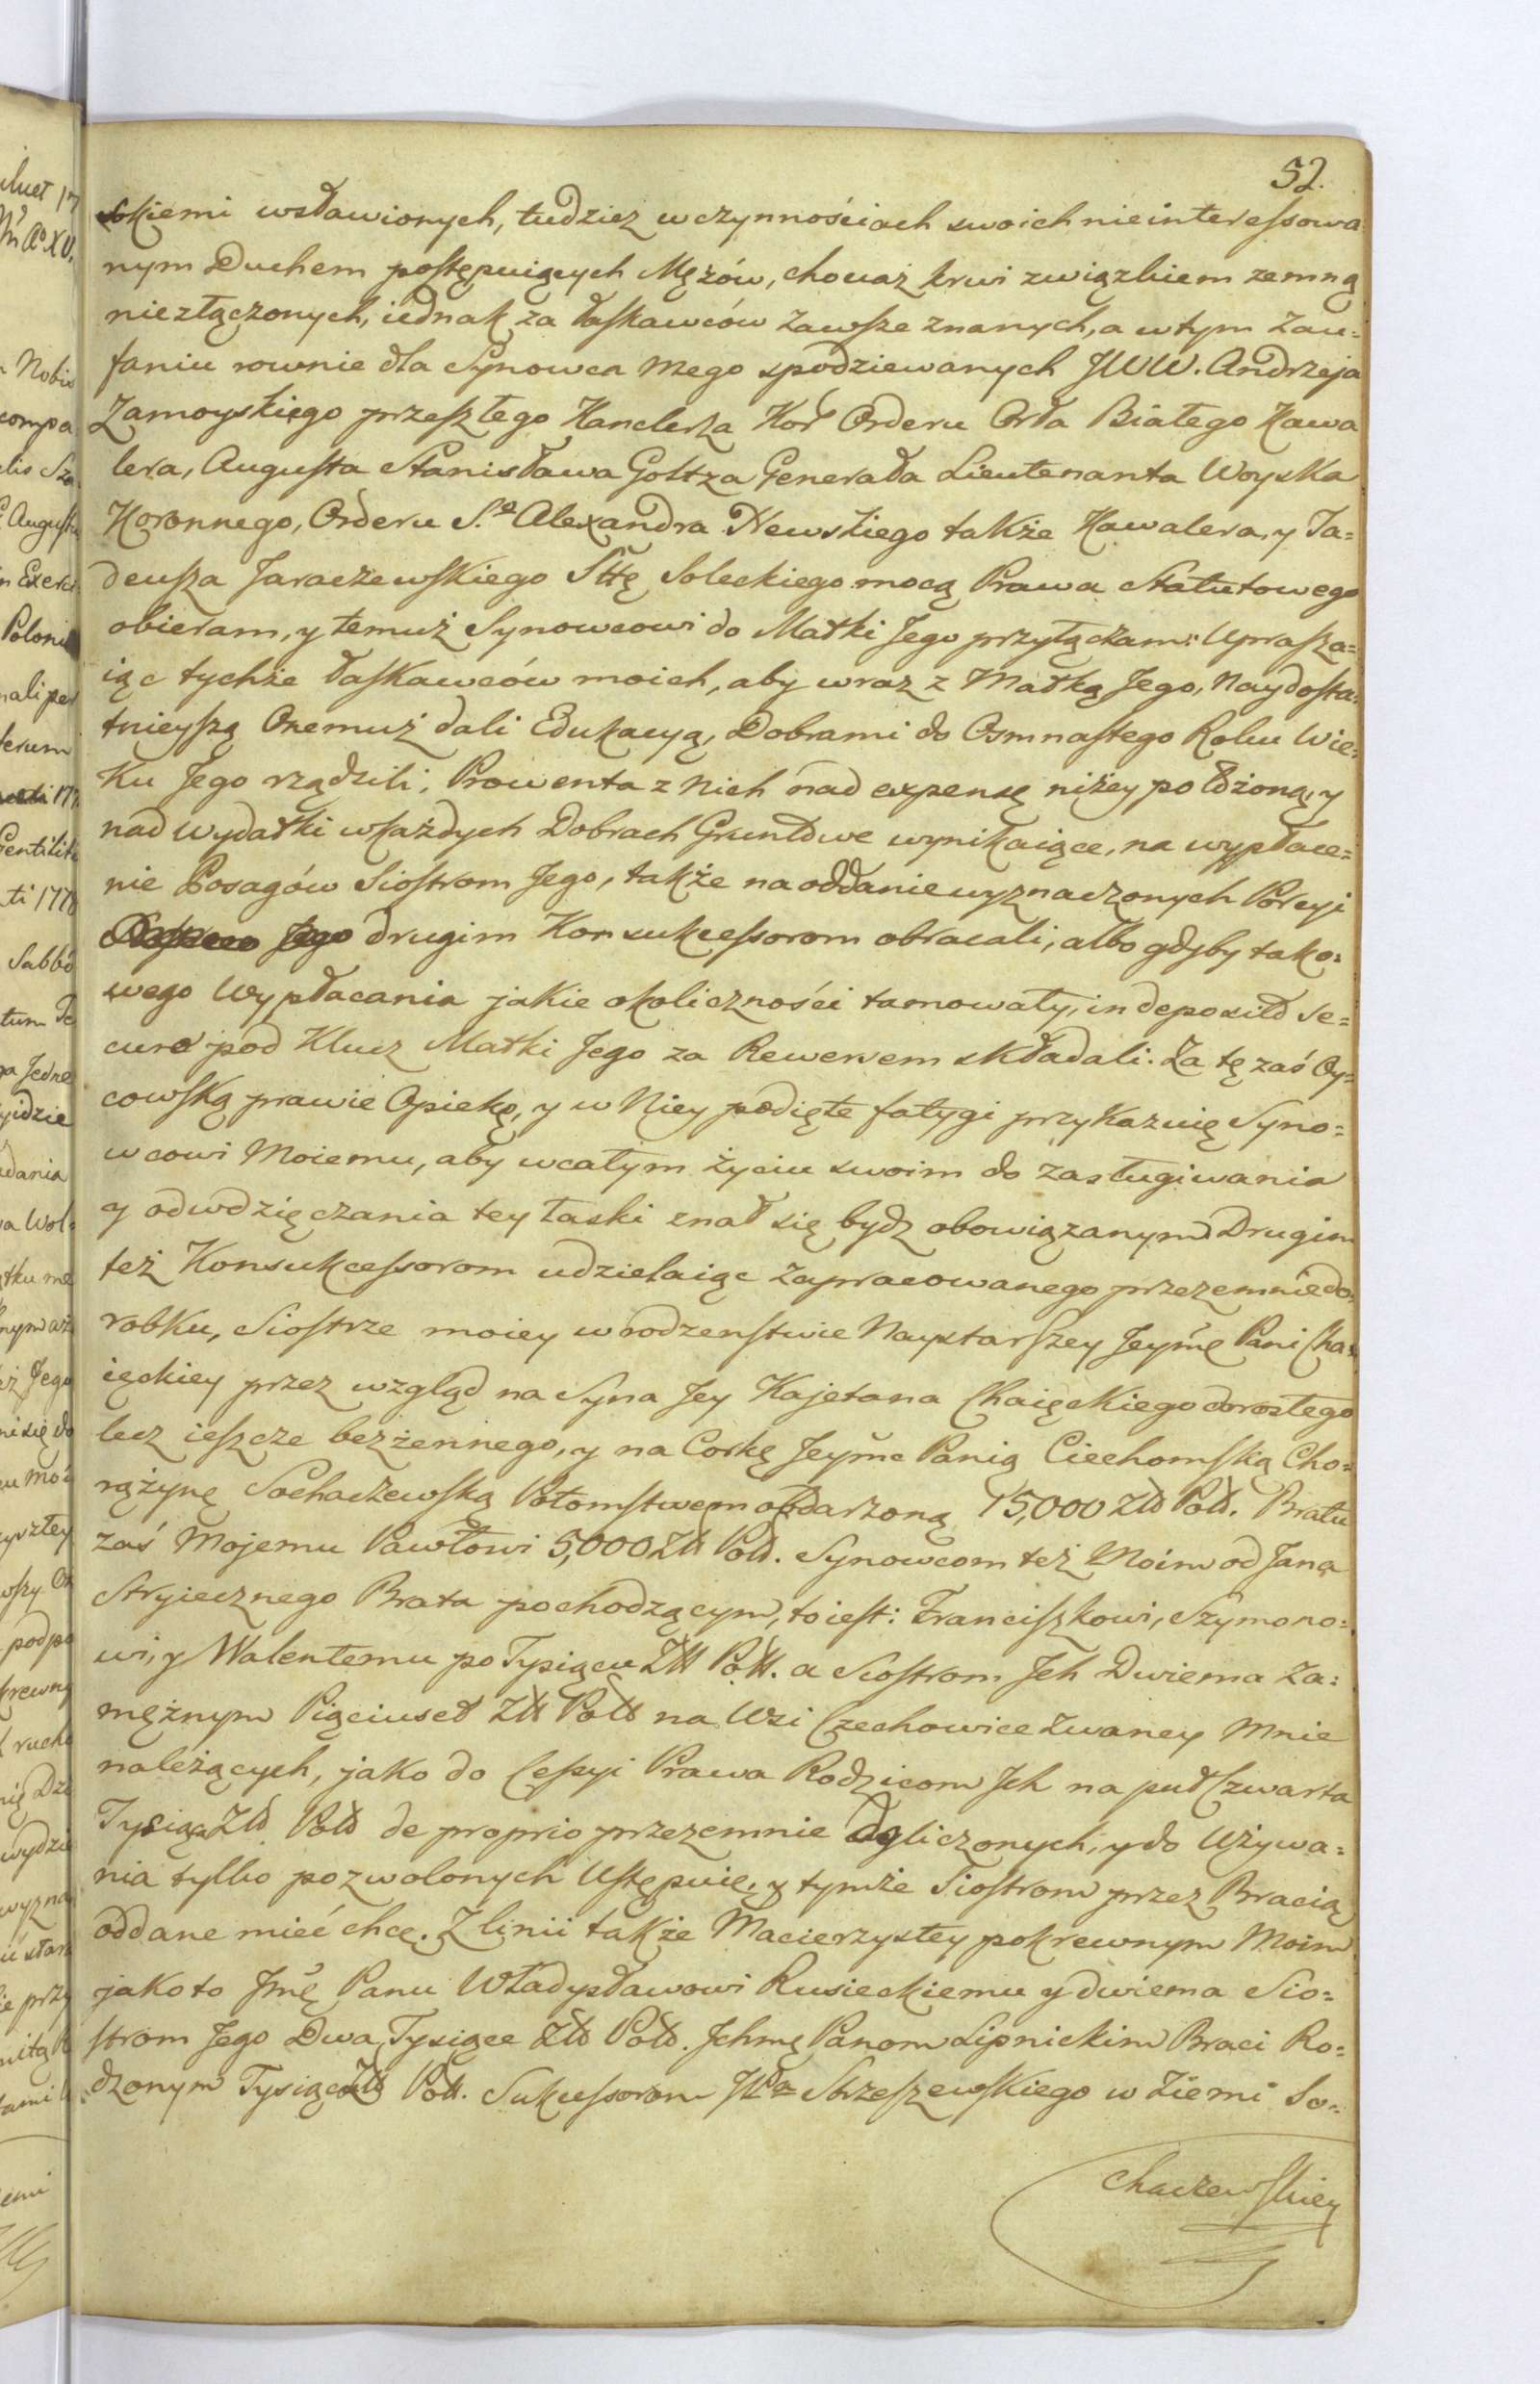 52.
skiemi wsławionych, tudziez w czynnościach swoich nieinteressowa
nym Duchem postępuiących Mężów, chociaż krwi związkiem zemną
niezłączonych, iednak za łaskawców zawsze znanych, a w tym zau=
faniu rownie dla Synowca mego spodziewanych JWW. Andrzeja
Zamoyskiego przeszłego Kanclerza Kor Orderu Orła Białego Kawa
lera, Augusta Stanisława Goltza Generała Lieutenanta Woyska
Koronnego, Orderu S.o Alexandra Newskiego także Kawalera, y Ta=
deusza Jaraczewskiego Sttę Soleckiego mocą Prawa Statutowego
obieram, y temuż Synowcowi do Matki Jego przyłączam: Uprasza=
iąc tychże łaskawców moich, aby wraz z Matką Jego, Naydosta=
tnieyszą Onemuż dali Edukacyą, Dobrami do Osmnastego Roku Wie=
ku Jego rządzili, Prowenta z nich nad expensę niżey położoną, y
nad wydatki w każdych Dobrach Gruntowe wynikaiące, na wypłace=
nie Posagów Siostrom Jego, także na oddanie wyznaczonych Porcyi
Jego drugim Konsukcessorom obracali, albo gdyby tako=
wego Wypłacania jakie okoliczności tamowały, in deposito se=
curo pod Klucz Matki Jego za Rewersem składali. Za tę zaś Oy=
cowską prawie Opiekę, y w Niey podięte fatygi przykazuię Syno=
wcowi Moiemu, aby w całym życiu swoim do zasługiwania
y odwdzięczania tey łaski znał się bydz obowiązanym Drugim
też Konsukcessorom udzielaiąc zapracowanego przezemnie do=
robku, Siostrze moiey w rodzenstwie Naystarszey Jeymę Pani Cha=
ięckiey przez wzgląd na Syna Jey Kajetana Chaięckiego dorosłego
lecz ieszcze bezżennego, y na Corkę Jeyme Panią Ciechomską Cho=
rążynę Sochaczewską Potomstwem obdarzoną 15,000 Złł Poll. Bratu
zaś Mojemu Pawłowi 5,000 Złł Poll. Synowcom też Moim od Jana
Stryiecznego Brata pochodzącym, to iest: Franciszkowi, Szymono=
wi, y Walentemu po Tysiącu Złł Poll. a Siostrom Jch Dwiema Za=
mężnym Pięciuset Złł Poll na Wsi Czechowice zwaney Mnie
należących, jako do Cessyi Prawa Rodzicom Jch na puł Czwarta
Tysiąca Złł Poll de proprio przezemnie doliczonych, y do Używa=
nia tylko pozwolonych Ustępuię, y tymże Siostrom przez Bracią
oddane mieć chcę. Z linii także Macierzystey pokrewnym Moim
jako to Jmę Panu Władysławowi Rusieckiemu y dwiema Sio=
strom Jego Dwa Tysiące Złł Poll. Jchmę Panom Lipnickim Braci Ro=
dzonym Tysiąc Złł Poll. Sukcessorom JPa Strzeszewskiego w Ziemi So=
chaczewskiey